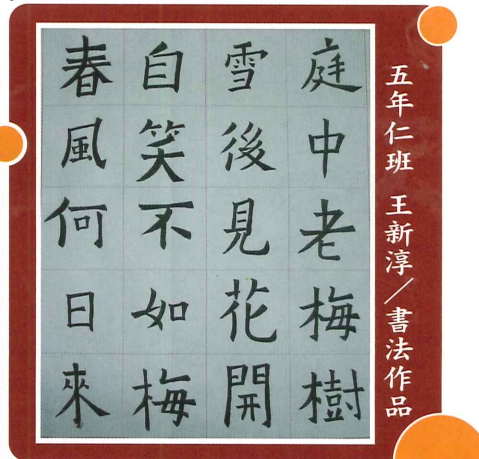 五年仁班 王新淳／書法作品
庭中老梅樹
雪後見花開
自笑不如梅
春風何日來